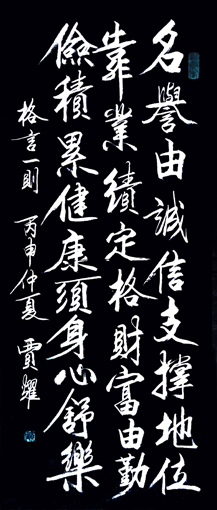 名譽由誠信支撐地位
靠業績定格財富由勤
儉積累健康須身心舒樂
格言一則 丙申仲夏 賈耀